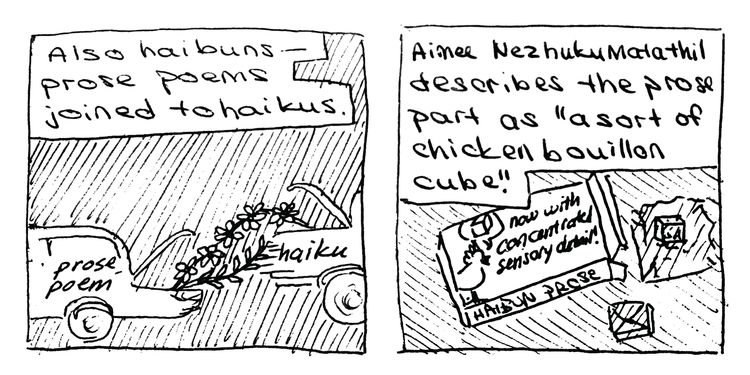 Also haibuns—
prose poems
joined to haikus.
prose
poem
haiku
Aimee Nezhukumatathil
describes the prose
part as "a sort of
chicken bouillon
cube".
now with
concentrated
sensory detail!
HAIBUN PROSE